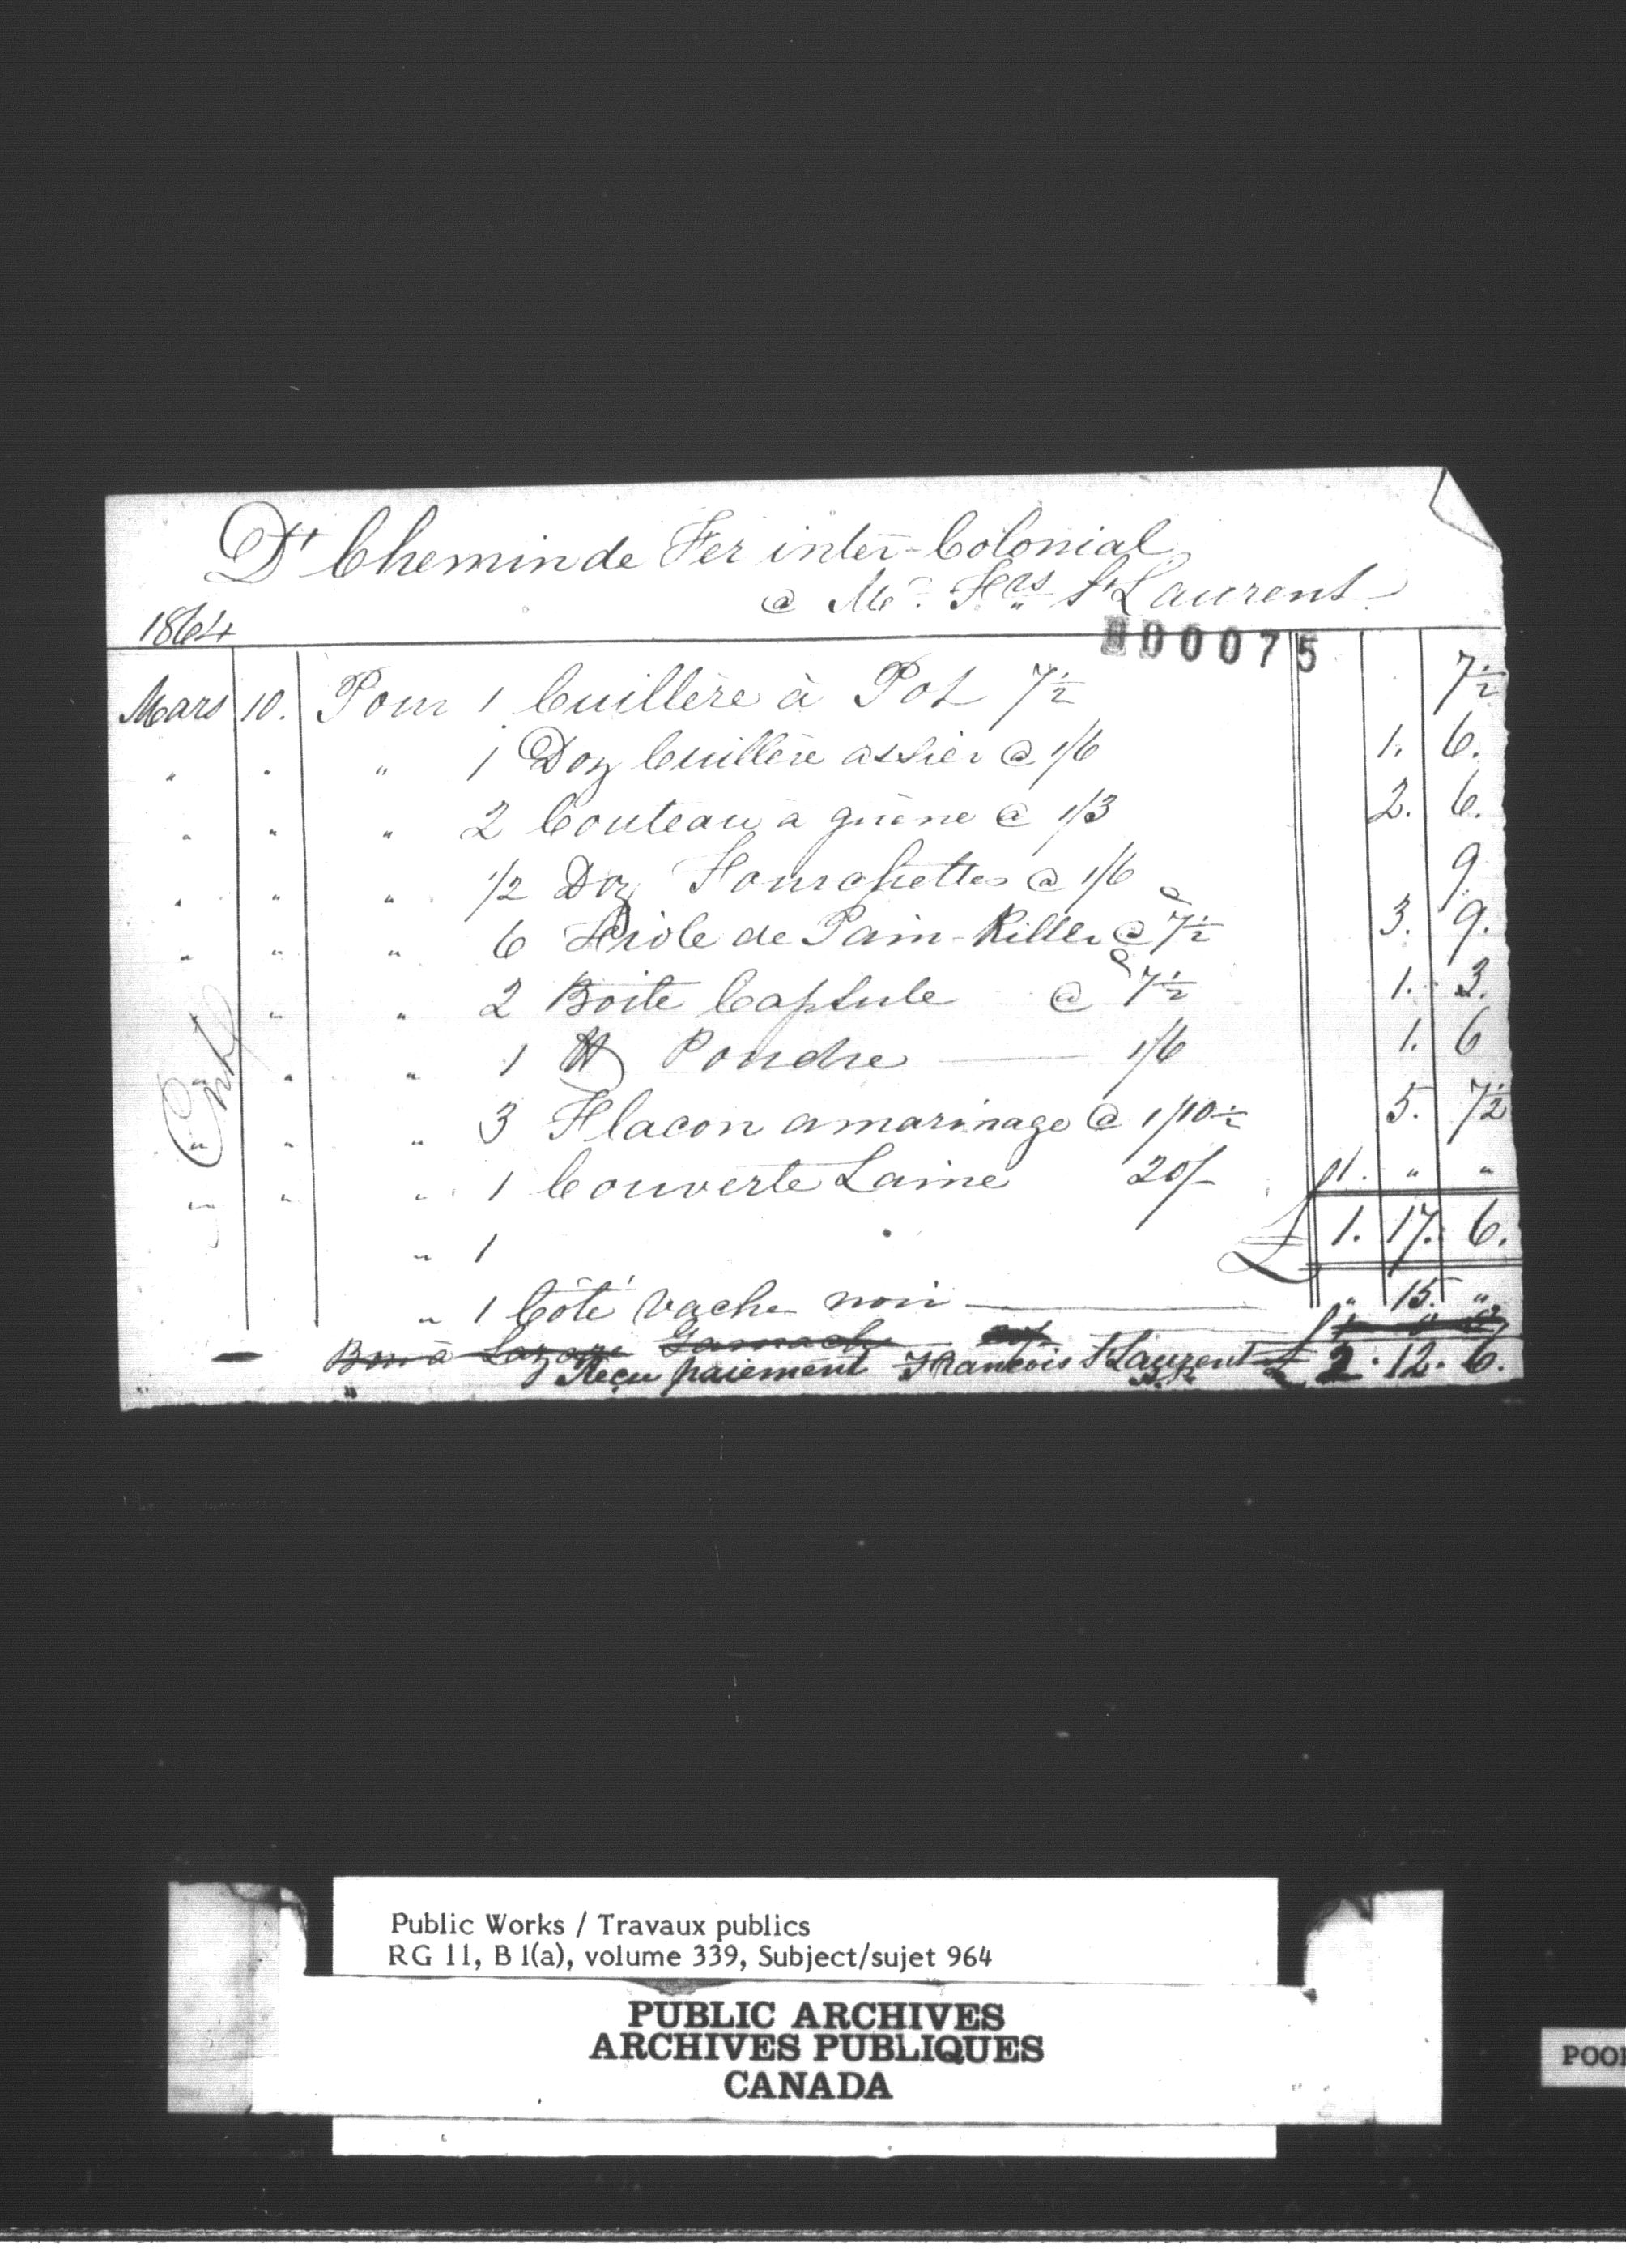 Dt Chemin de Fer inter-Colonial
@ Mr. Frs St Laurent
1864
000075
Mars 10. Pour 1 Cuillère à Pot 7½ 7½
" " " 1 Doz Cuillère assier @ 1/6 1. 6.
" " " 2 Couteau a guène @ 1/3 2. 6.
" " " 1/2 Doz Fourchettes @ 1/6 9.
" " " 6 Fiole de Pain-Killer @ 7½ 3. 9.
" " 2 Boite Capsule @ 7½ 1. 3.
" " " 1 lb Poudre 1/6 1. 6
" " " 3 Flacon amarinage @ 1/10½ 5. 7½
" " " 1 Couverte Laine 20/- £1. " "
" 1 £ 1. 17. 6.
" 1 Côté vache noir " 15. "
Bon à Lazare Gamache
Reçu paiement Francois St Laurent £ 2. 12. 6.
Public Works / Travaux publics
RG 11, B 1(a), volume 339, Subject/sujet 964
PUBLIC ARCHIVES
ARCHIVES PUBLIQUES
CANADA